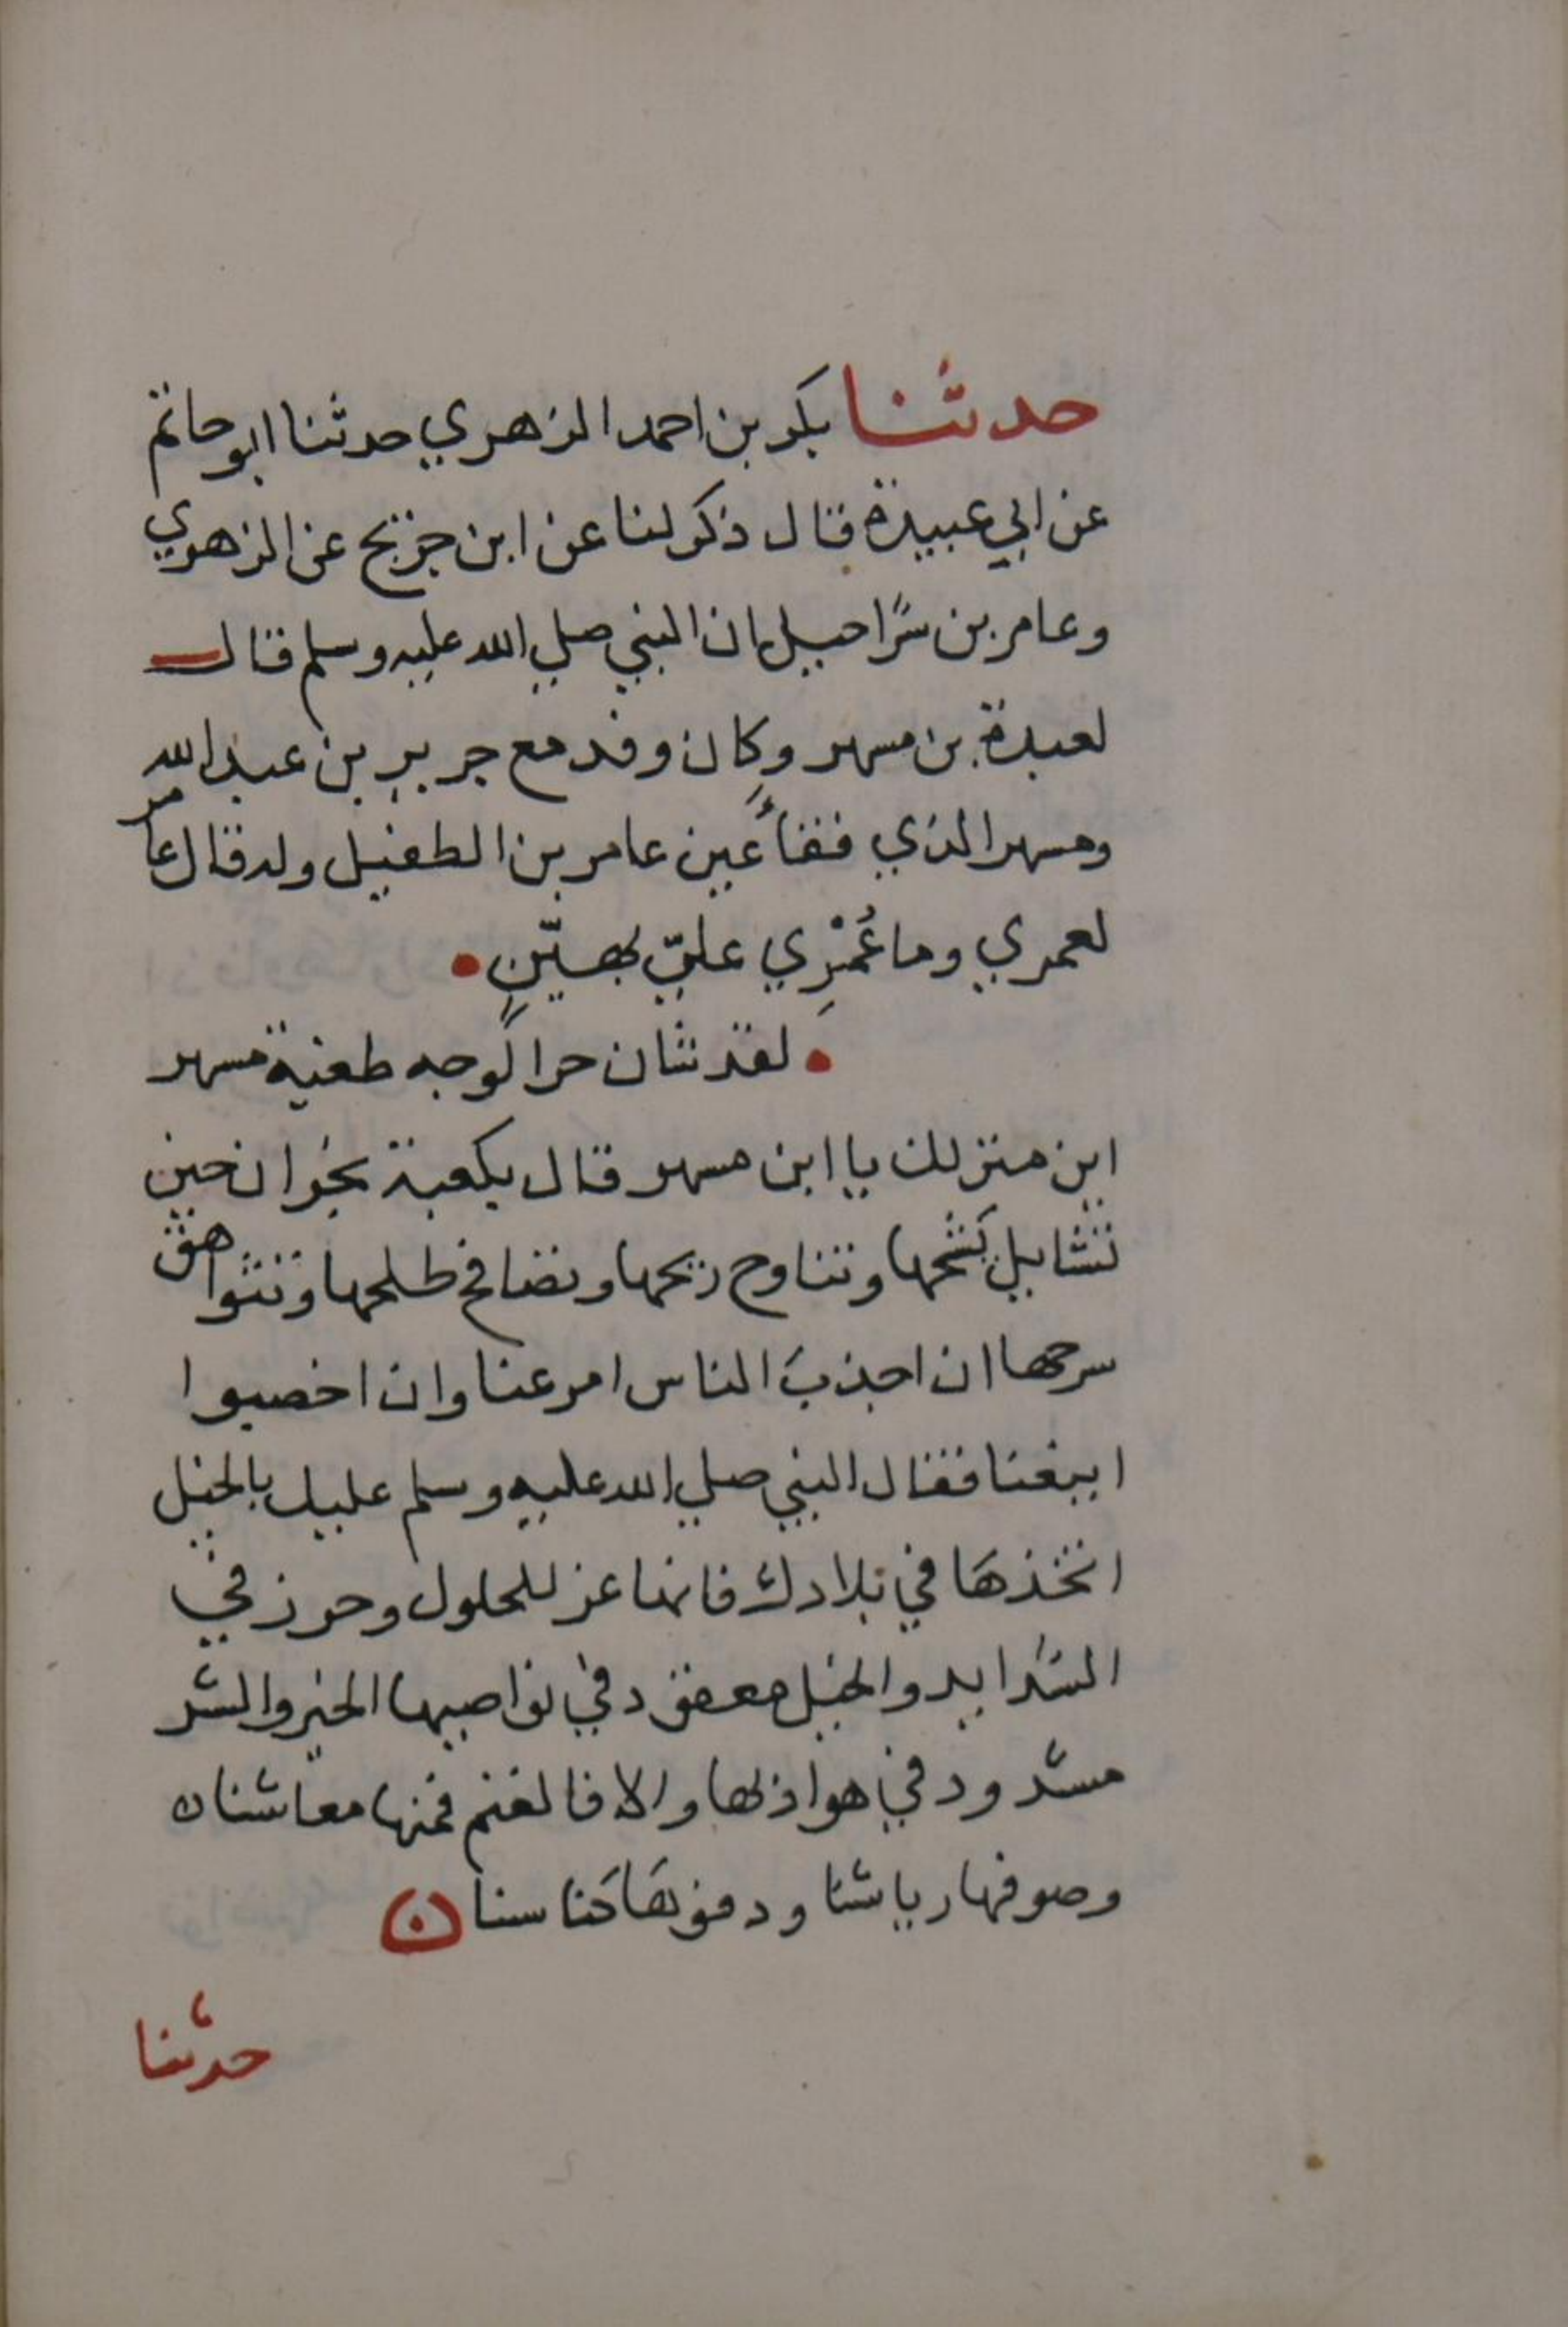 حدثنا بكر بن احمد الزهري حدثنا ابو حاتم
عن ابي عبيدة قال ذكر لنا عن ابن جريج عن الزهري
وعامر بن شراحيل ان النبي صلي الله عليه وسلم قال
لعبدة بن مسهر وكان وفد مع جرير بن عبد الله
ومسهر الذي ففأ عين عامر بن الطفيل وله قال عامر
لعمري وما عُمْرِي عليّ بهيّنٍ
لقد شان حر الوجه طعنة مسهر
اين منزلك يا ابن مسهر قال بكعبة نجران حين
تتشابل كَشحها وتتناوح ريحها وتضافح طلحها وتتواهق
سرحها ان اجذبَ الناس امرعنا وان اخصبوا
ابيغنا فقال النبي صلي الله عليه وسلم عليك بالخيل
اتخذها في بلادك فانها عز للحلول وحرز في
الشدايد والخيل معقود في نواصيها الخير والشر
مشدود في هواذلها والا فالغنم فمنها معاشنا
وصوفها رياشنا ودفؤها كناسنا
حدثنا